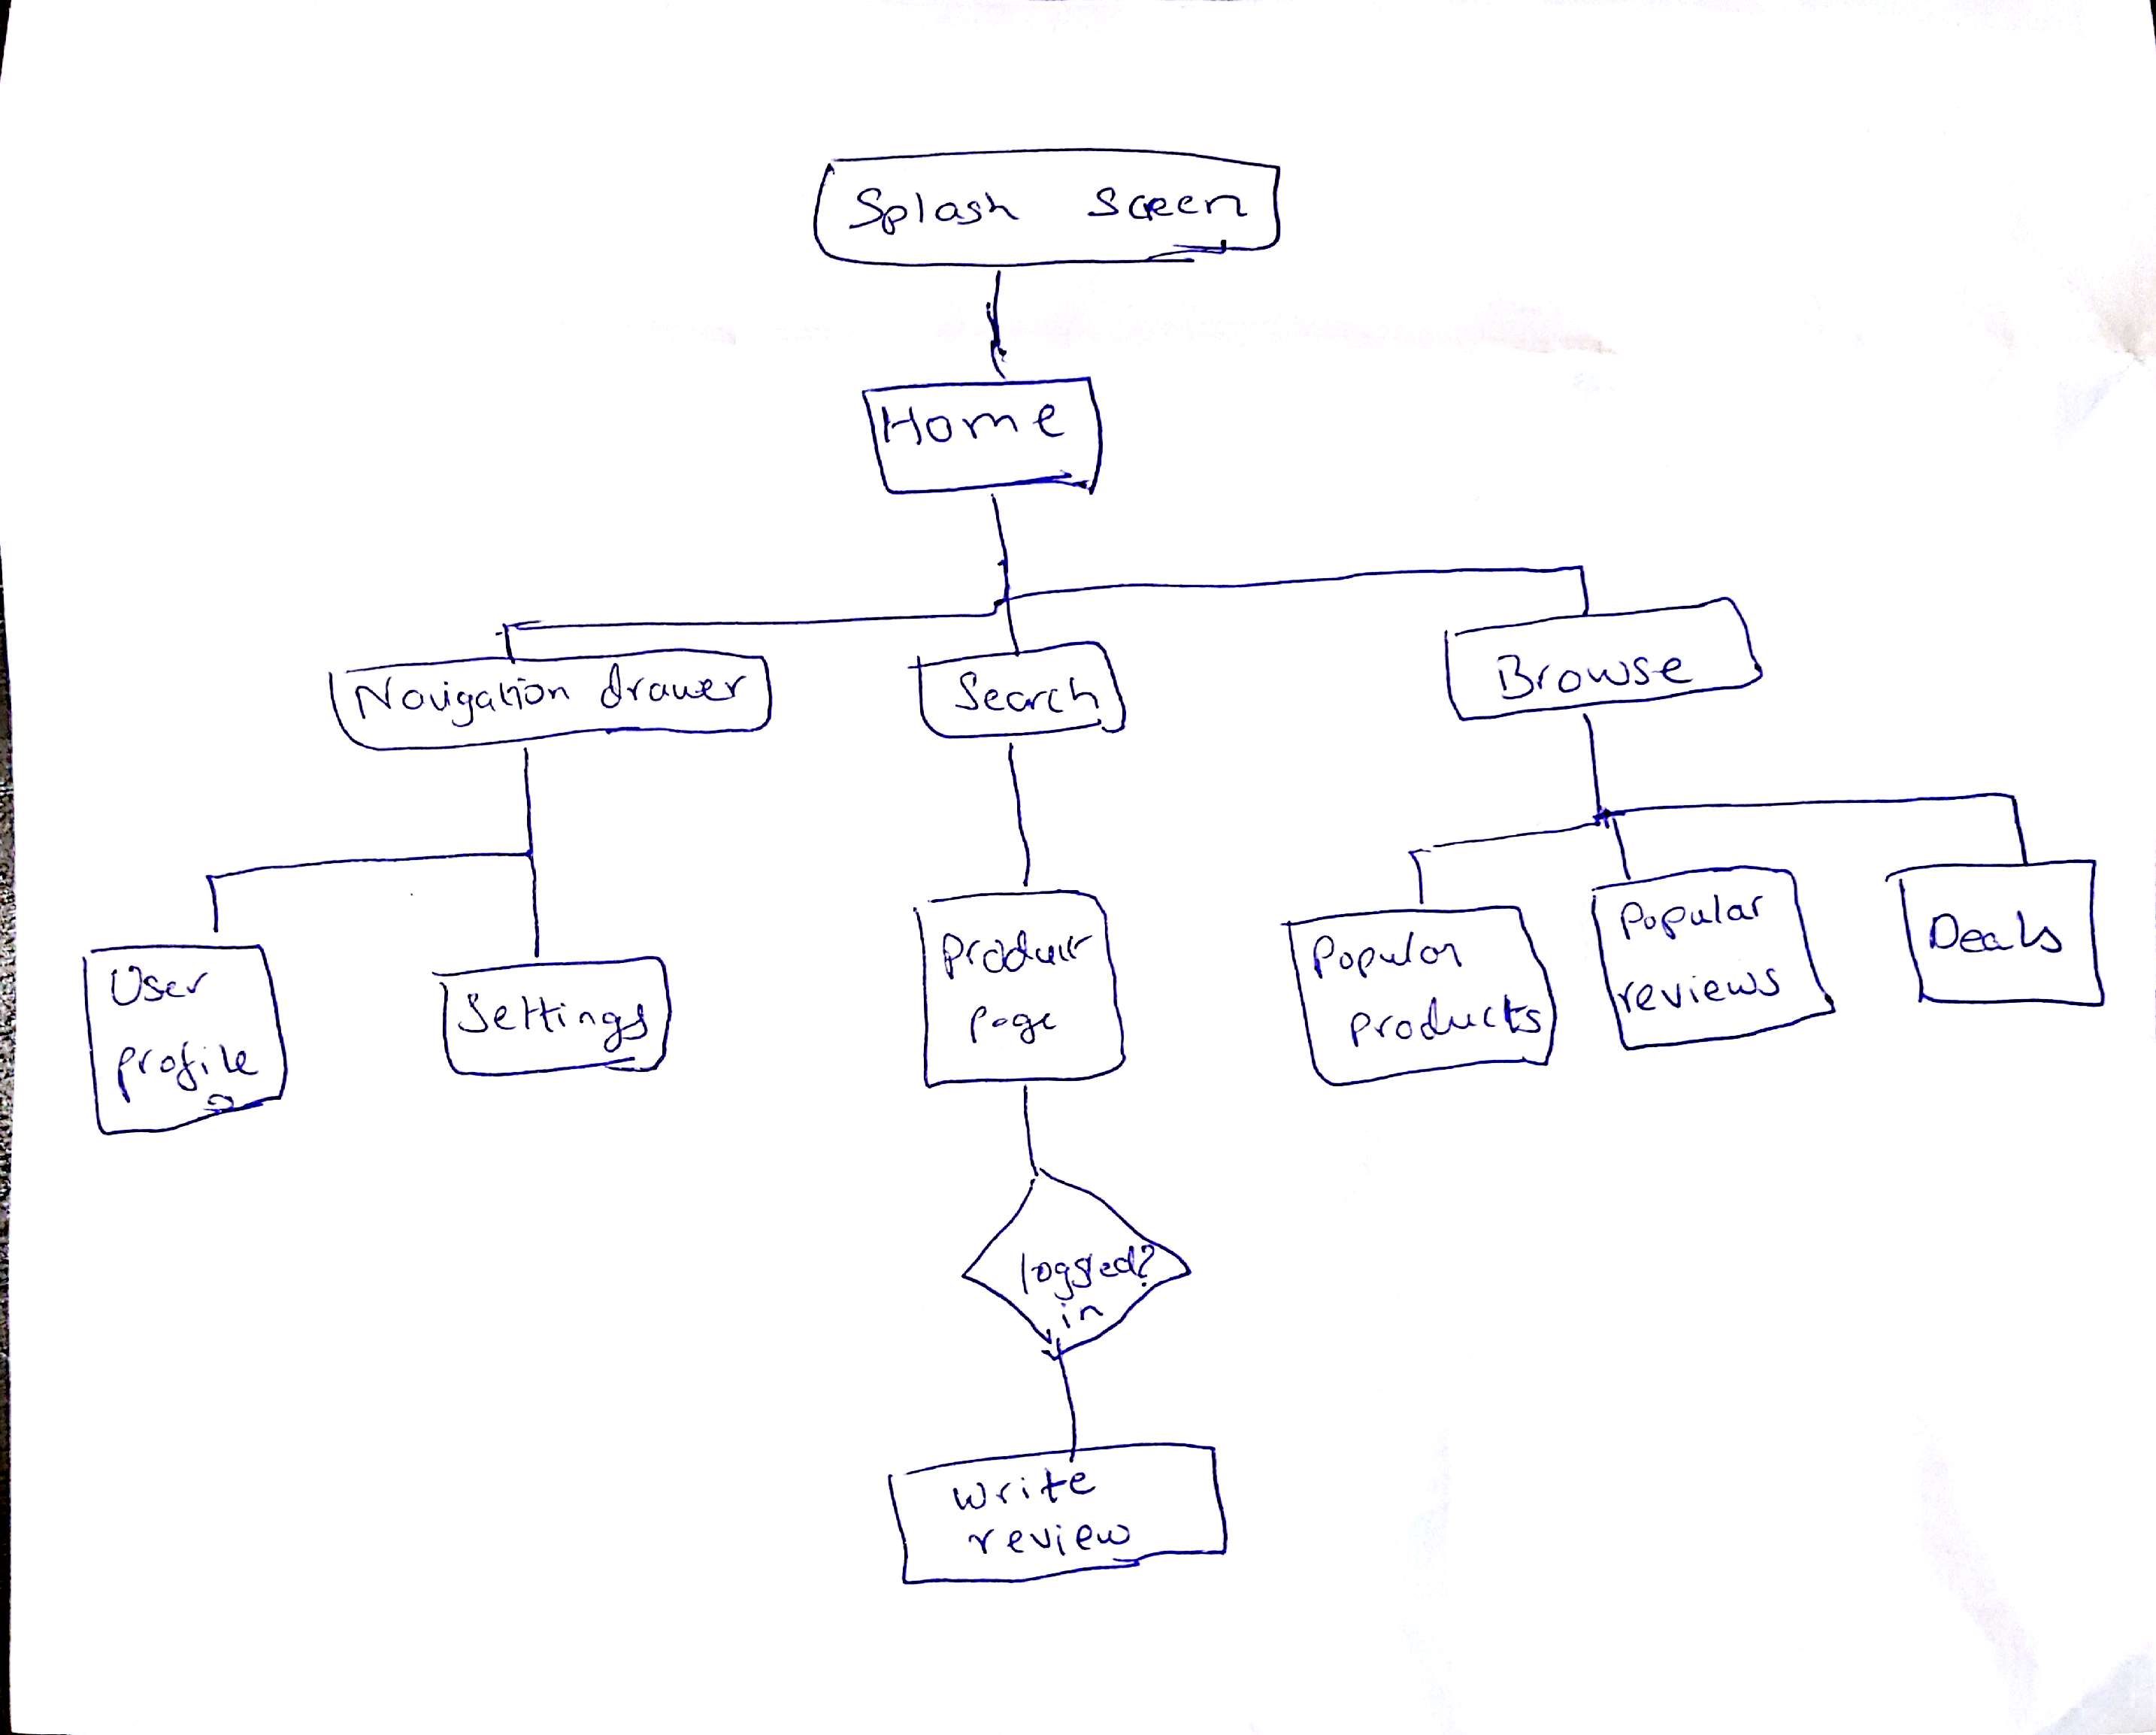 Splash Screen
Home
Navigation drawer
Search
Browse
User
profile
Settings
Product
page
Popular
products
Popular
reviews
Deals
logged?
in
Write
review